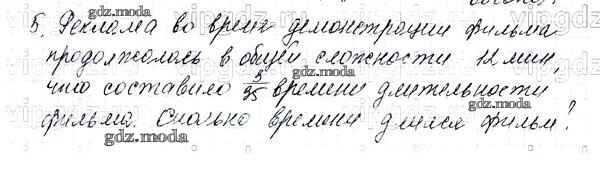 5. Реклама во время демонстрации фильма
продолжалась в общей сложности 12 мин,
что составило 3/25 времени длительности
фильма. Сколько времени длился фильм?
gdz.moda
gdz.moda
gdz.moda
gdz.moda
gdz.moda